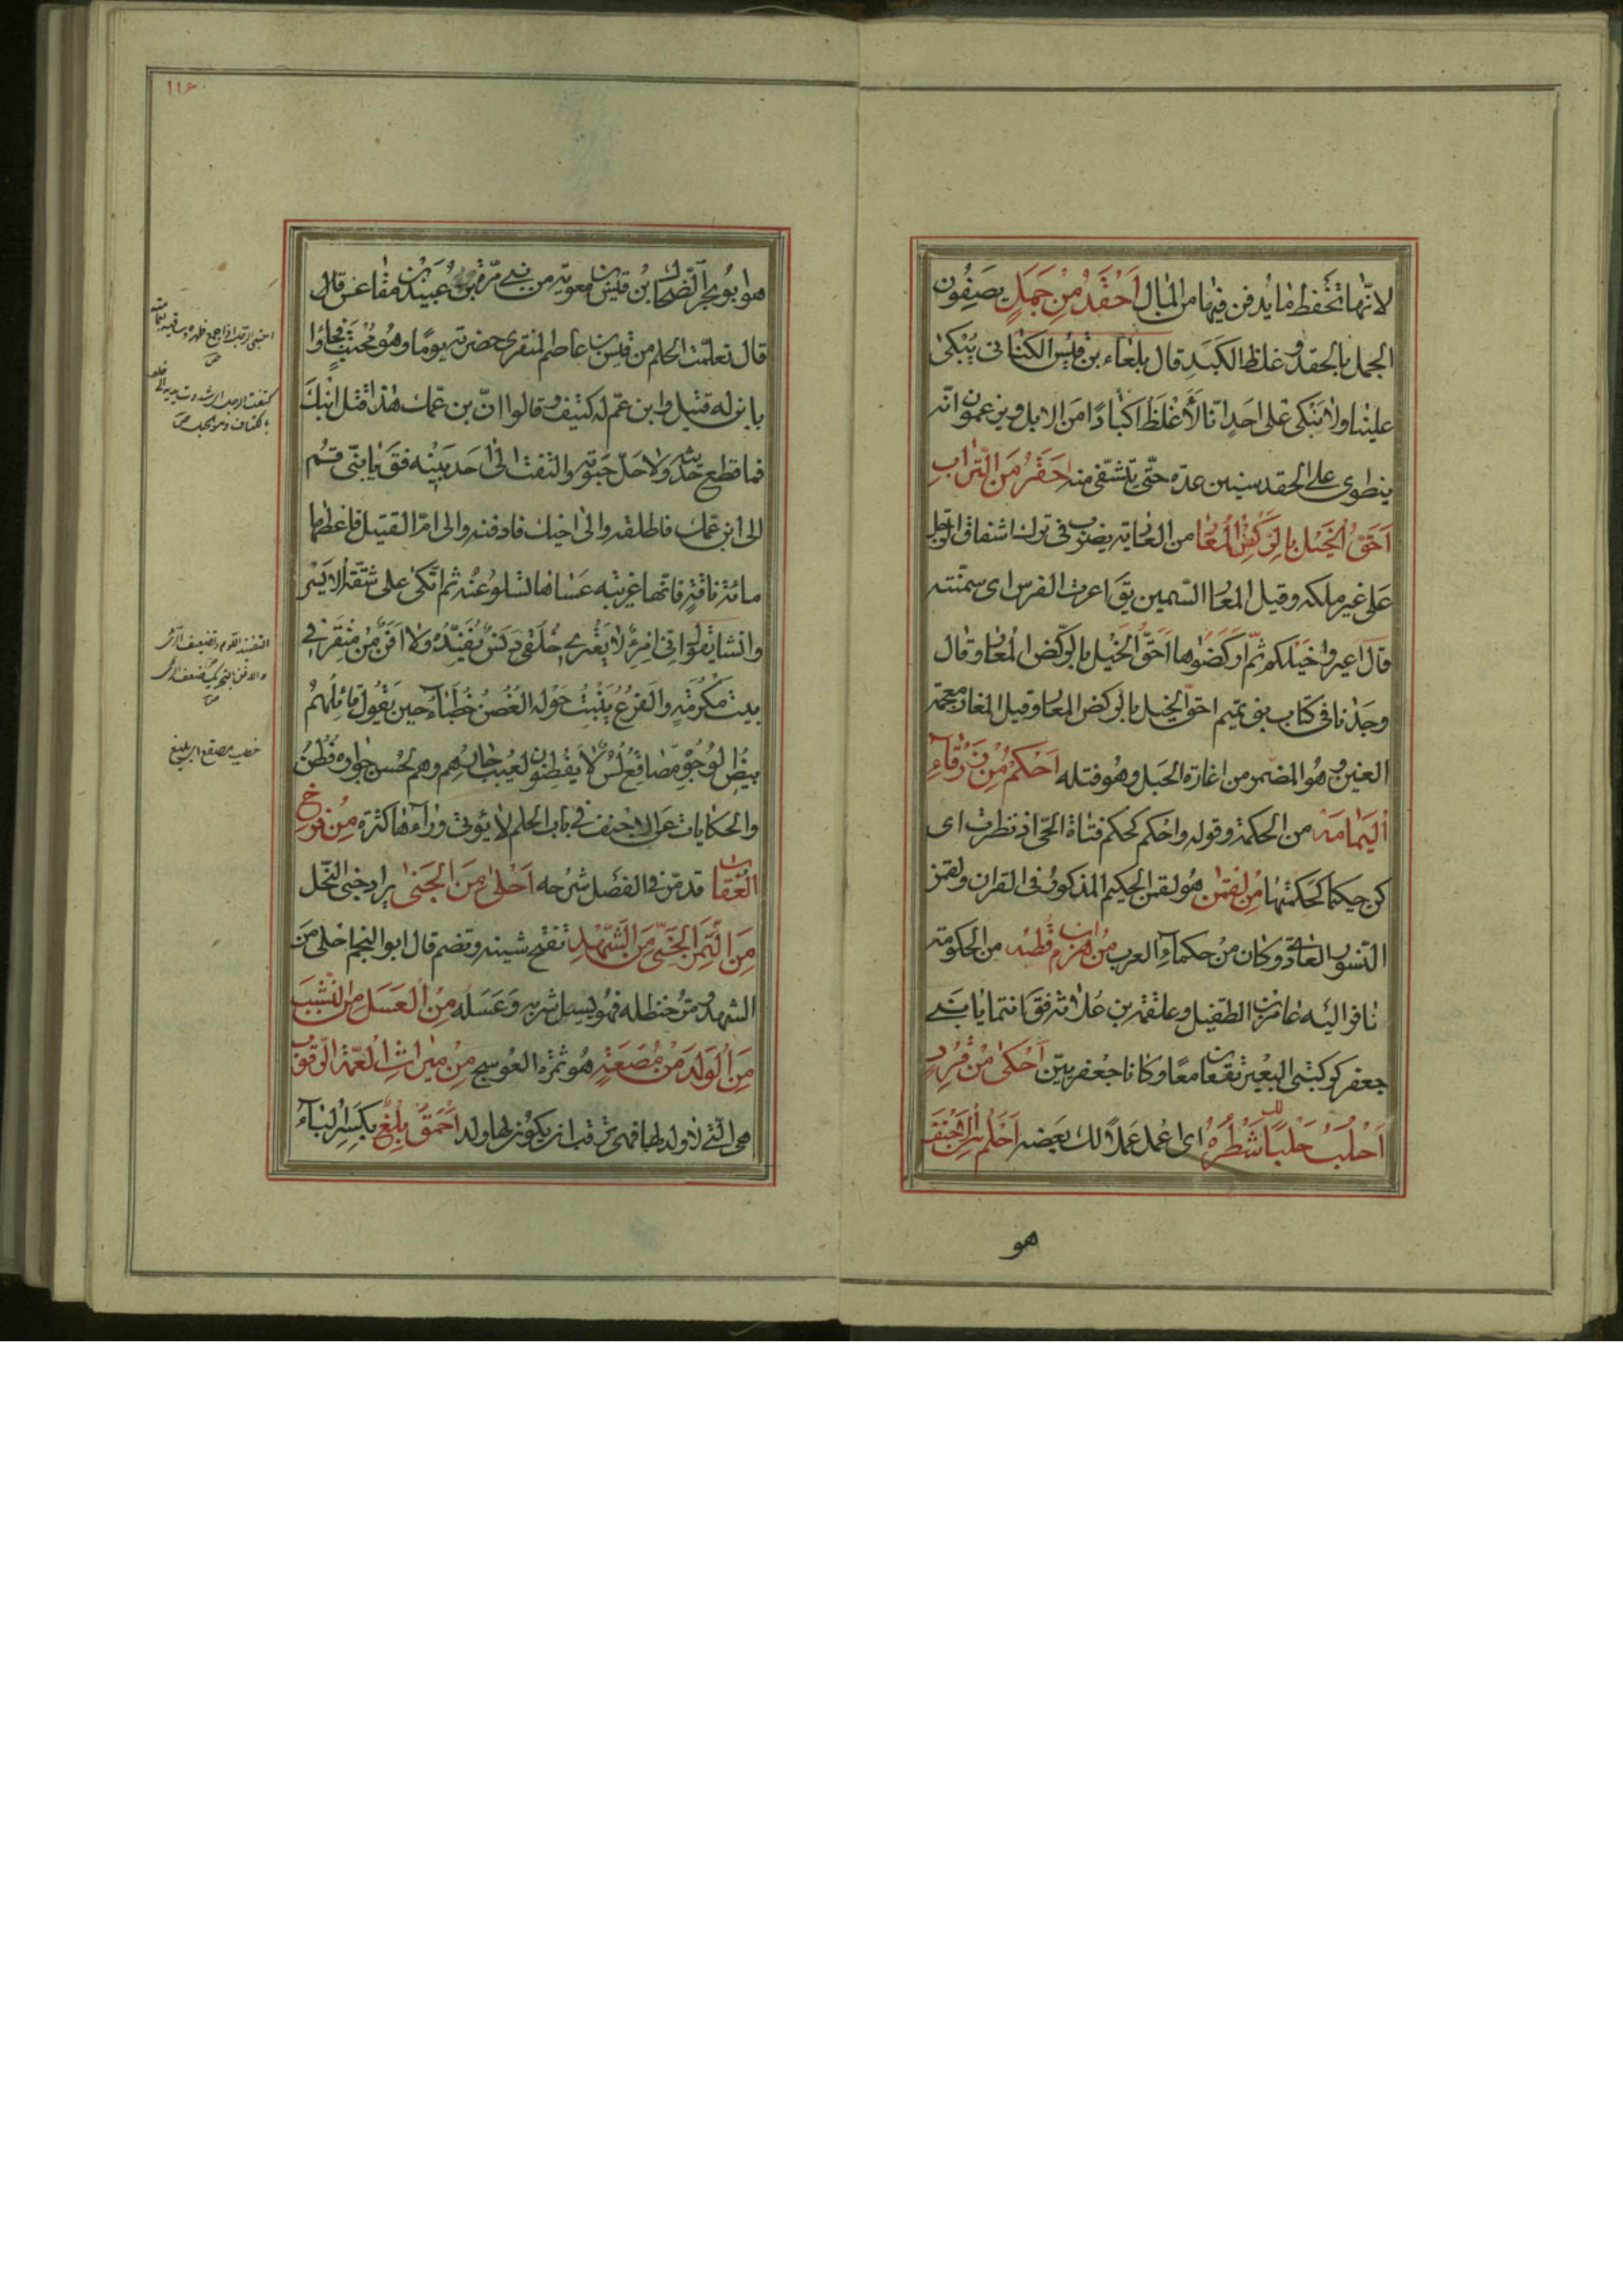 لانّها تحفظ ما يدفن فيها من المال اَحْقَدُ مِنْ جَمَلٍ يصفون
الجمل بالحقد و غلظ الكبد قال بلعاء بن قيس الكنانى يُبْكىٰ
علينا ولا نَبكى على احد انّا لَأَغْلَظُ اكبادًا من الابل ويزعمون انّه
ينطوى على الحقد سنين عدّة حتّى يتشفّى منه اَحْقَرُ مِنَ التُّرابِ
اَحَقُّ الْخَيْلِ بِالرَّكْضِ الْمُعارُ من العارية يضرب فى ترك اشفاق الرجل
على غير ملكه وقيل المعار السّمين يق اعرت الفرس اى سمّنته
قال اعيروا خيلكم ثمّ اركضوها احقّ الخيل بالرّكض المعار وقال
وجدنا فى كتاب بنى تميم احقّ الخيل بالركض المعار وقيل المغار بمعجمة
العين و هو المضمر من اغارة الحبل وهو فتله اَحْكَمُ مِنْ زَرْقاءِ
اليَمامَة من الحكمة وقوله واحكم كحكم فتاة الحىّ اذ نظرت اى
كن حكيمًا كحكمتها مِنْ لُقمٰن هو لقمن الحكيم المذكور فى القران ولقمن
النسور العادىّ وكان من حكماء العرب مِنْ هَرِم بن قُطْبَة من الحكومة
نافر اليه عامر بن الطفيل وعلقمة بن علاثة فقَ انتما يا بنى
جعفر كركبتى البعير تقعان معًا وكانا جعفريّين اَحْكىٰ مِنْ قِرْدٍ
اَحْلُبُ حَلَبًا لَكَ شَطْرُهُ اى اعمل عملًا لك بعضه اَحْلَمُ مِنَ الْاَحْنَف
هو
١١٤
هو ابو بحر الضّحاك بن قيس بن معوية من بنى مرّة بن عبيد بن مقاعس قال
قال تعلّمت الحلم من قيس بن عاصم المنقرى حضرته يومًا وهو مُحْتَبٍ فجاؤا
بابن له قتيل وابن عمّ له كتيف وقالوا انّ بن عمّك هذا قتل ابنك
فما قطع حديثه ولا حلّ حبوته والتفت الى احد بنيه فقَ يا بنىّ قُم
الى ابن عمّك فاطلقه والى اخيك فادفنه والى امّ القتيل فاعطها
مائة ناقة فانّها غريبة عساها تسلو عنه ثم اتّكى على شقّه الايسر
وانشا يقول انّى امرؤٌ لا يعْترى خُلُقى دَنَسٌ يُفَنِّدُهُ ولا اَفَنُ مِنْ مِنْقَرٍ فى
بيت مكرُمةٍ والفرع ينبت حوله الغصن خطباء حين يقول قائلهم
بيض الوجوه مصاقع لُسُنٌ لا يفطنون لعيب جارهم وهم لحسن جواره فُطُنُ
والحكايات عن الاحنف فى باب الحلم لا يؤتى ورآءها كثرة مِنْ فَرْخِ
العُقاب قد مرّ فى الفصل شرحه اَحْلىٰ مِنَ الْجَنىٰ يراد جنى النّحل
مِنَ التَّمْرِ الْجَنِىِّ مِنَ الشَّهْدِ تفتح شينه وتضم قال ابو النجم احلى من
الشهد ومرّ حنظله فهو يسيل شربه وعسله مِنَ الْعَسَلِ مِنَ النَّشَبِ
مِنَ الْوَلَدِ مِنْ مُصَعَةٍ هو ثمرة العوسج مِنْ ميراثِ الْعَمَّةِ الرَّقُوب
هى الّتى لا ولد لها فهى ترقب ان يكون لها ولد اَحْمَقُ بِلْغٌ بكسر الباء
خطيب مصقع اى بليغ